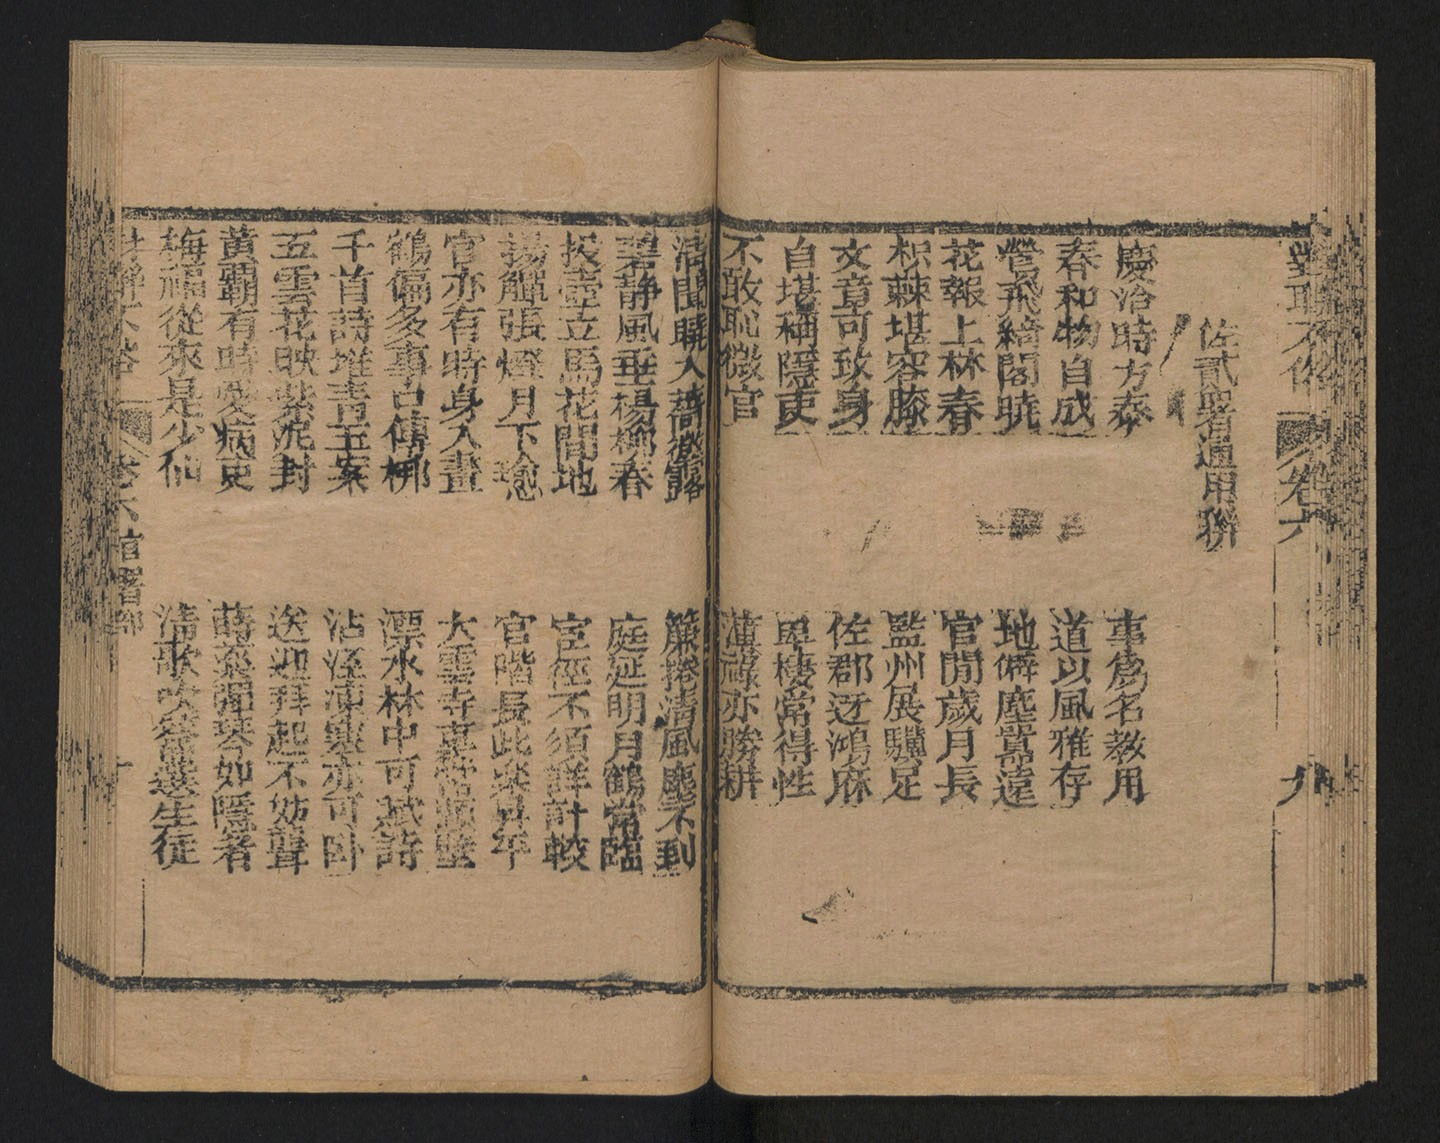 對聯不俗 卷六 九
佐貳署通用聯
慶洽時方泰 事為名教用
春和物自成 道以風雅存
鶯飛綺閣曉 地僻塵囂遠
花報上林春 官閒歲月長
枳棘堪容膝 監州展驥足
文章可致身 佐郡迓鴻麻
自堪稱隱吏 卑棲常得性
不敢恥微官 薄祿亦勝耕
清聞曉入荷 露 簾捲清風塵不到
琴靜風垂楊柳春 庭延明月鶴常臨
投壺立馬花間地 宦徑不須詳計較
揚觶張燈月下 官階長此樂昇平
官亦有時身入畫 大雲寺
鶴偏多事古傳梆 漂水林中可賦詩
千首詩堆青玉案 沾 凍 亦可卧
五雲花映紫泥封 送迎拜起不妨聾
黃霸有時愛病吏 蒔藥彈琴如隱者
梅福從來是少仙 清歌吹 生徒
對聯不俗 卷六 官署部 十